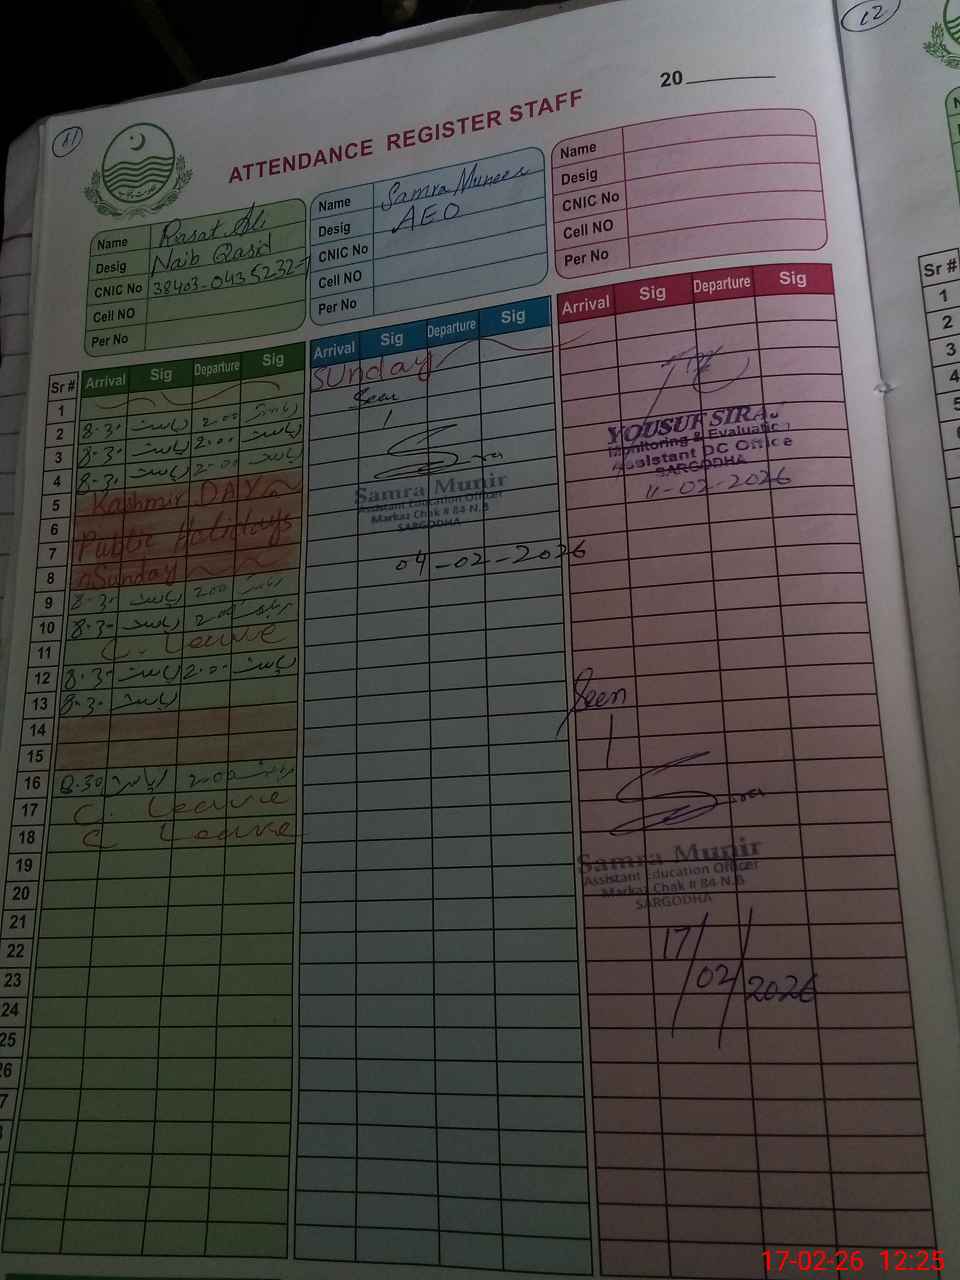 11
12
20
ATTENDANCE REGISTER STAFF
Name
Desig Naib Qasid
CNIC No 38403-0435232-
Cell NO
Per No
Name Samra Muneer
Desig AEO
CNIC No
Cell NO
Per No
Name
Desig
CNIC No
Cell NO
Per No
Sr # Arrival Sig Departure Sig
Arrival Sig Departure Sig
Arrival Sig Departure Sig
1 Sunday
2 8.30 2.00
3 8.30 2.00
4 8.30 2.00
5 Kashmir DAY
6 Public Holidays
7
8 Sunday
9 8.30 2.00
10 8.30 2.00
11 C. Leave
12 8.30 2.00
13 8.30
14
15
16 8.30 2.00
17 C. Leave
18 C Leave
19
20
21
22
23
24
25
26
Seen
Samra Munir
Assistant Education Officer
Markaz Chak # 84 N.B
SARGODHA
04-02-2026
YOUSUF SIRAJ
Monitoring & Evaluation
Assistant DC Office
SARGODHA
11-02-2026
Seen
Samra Munir
Assistant Education Officer
Markaz Chak # 84 N.B
SARGODHA
17/02/2026
Sr #
1
2
3
4
5
17-02-26 12:25